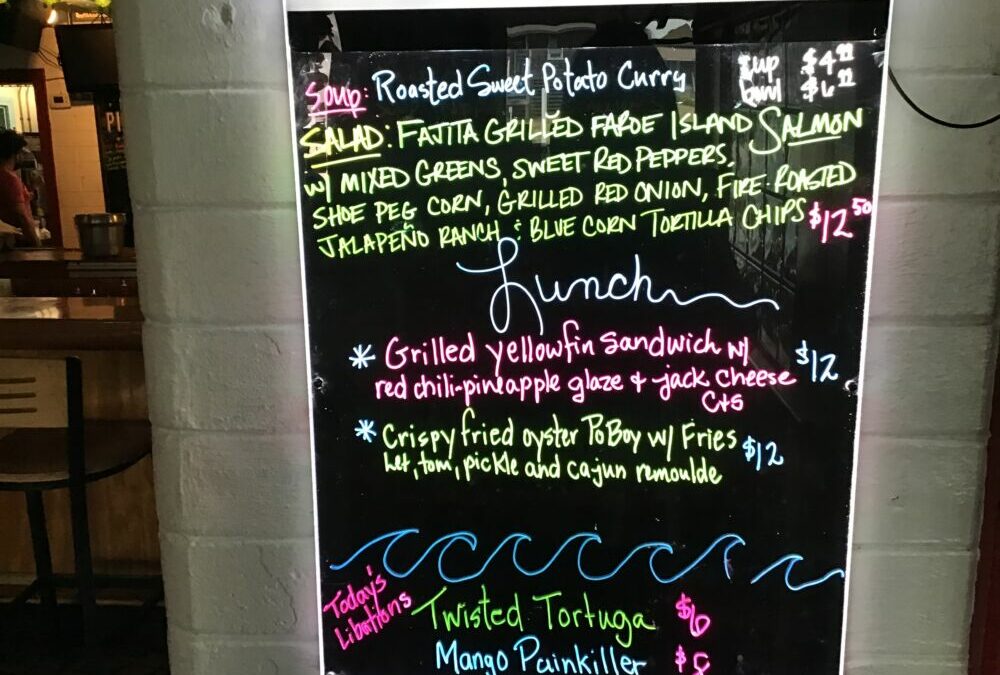 Soup: Roasted Sweet Potato Curry cup $4.99
bowl $6.99
SALAD: FAJITA GRILLED FAROE ISLAND SALMON
W/ MIXED GREENS, SWEET RED PEPPERS,
SHOE PEG CORN, GRILLED RED ONION, FIRE-ROASTED
JALAPEÑO RANCH & BLUE CORN TORTILLA CHIPS $12.50
Lunch
* Grilled yellowfin sandwich w/ $12
red chili-pineapple glaze + jack cheese
C+S
* Crispy fried oyster PoBoy w/ Fries $12
Let, tom, pickle and cajun remoulde
Today's
Libations
Twisted Tortuga
Mango Painkiller $8